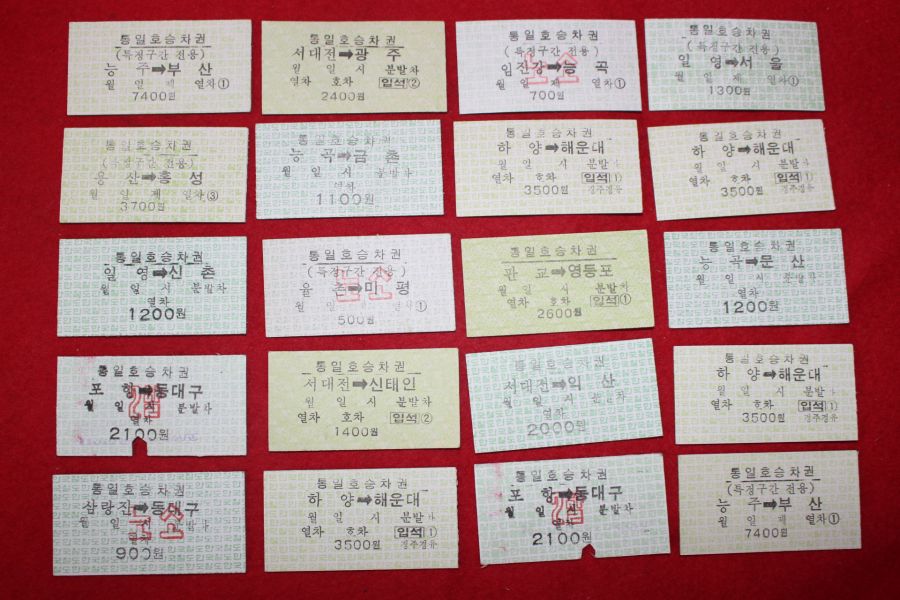 통일호승차권
(특정구간 전용)
능 주➡부 산
월 일 제 열차①
7400원
통일호승차권
서대전➡광 주
월 일 시 분발차
열차 호차 입석②
2400원
통일호승차권
(특정구간 전용)
임진강➡능 곡
월 일 제 열차①
700원
소
통일호승차권
(특정구간 전용)
일 영➡서 울
월 일 제 열차①
1300원
통일호승차권
(특정구간 전용)
용 산➡홍 성
월 일 제 열차③
3700원
통일호승차권
능 곡➡금 촌
월 일 시 분발차
열차
1100원
통일호승차권
하 양➡해운대
월 일 시 분발차
열차 호차 입석①
3500원 경주경유
통일호승차권
하 양➡해운대
월 일 시 분발차
열차 호차 입석①
3500원 경주경유
통일호승차권
일 영➡신 촌
월 일 시 분발차
열차
1200원
통일호승차권
(특정구간 전용)
율 촌➡마 평
월 일 제 열차①
500원
소
통일호승차권
판 교➡영등포
월 일 시 분발차
열차 호차 입석①
2600원
통일호승차권
능 곡➡문 산
월 일 시 분발차
열차
1200원
통일호승차권
포 항➡동대구
월 일 시 분발차
열차
2100원
통일호승차권
서대전➡신태인
월 일 시 분발차
열차 호차 입석②
1400원
통일호승차권
서대전➡익 산
월 일 시 분발차
열차
2000원
통일호승차권
하 양➡해운대
월 일 시 분발차
열차 호차 입석①
3500원 경주경유
통일호승차권
삼랑진➡동대구
월 일 시 분발차
열차
900원
소
통일호승차권
하 양➡해운대
월 일 시 분발차
열차 호차 입석①
3500원 경주경유
통일호승차권
포 항➡동대구
월 일 시 분발차
열차
2100원
통일호승차권
(특정구간 전용)
능 주➡부 산
월 일 제 열차①
7400원